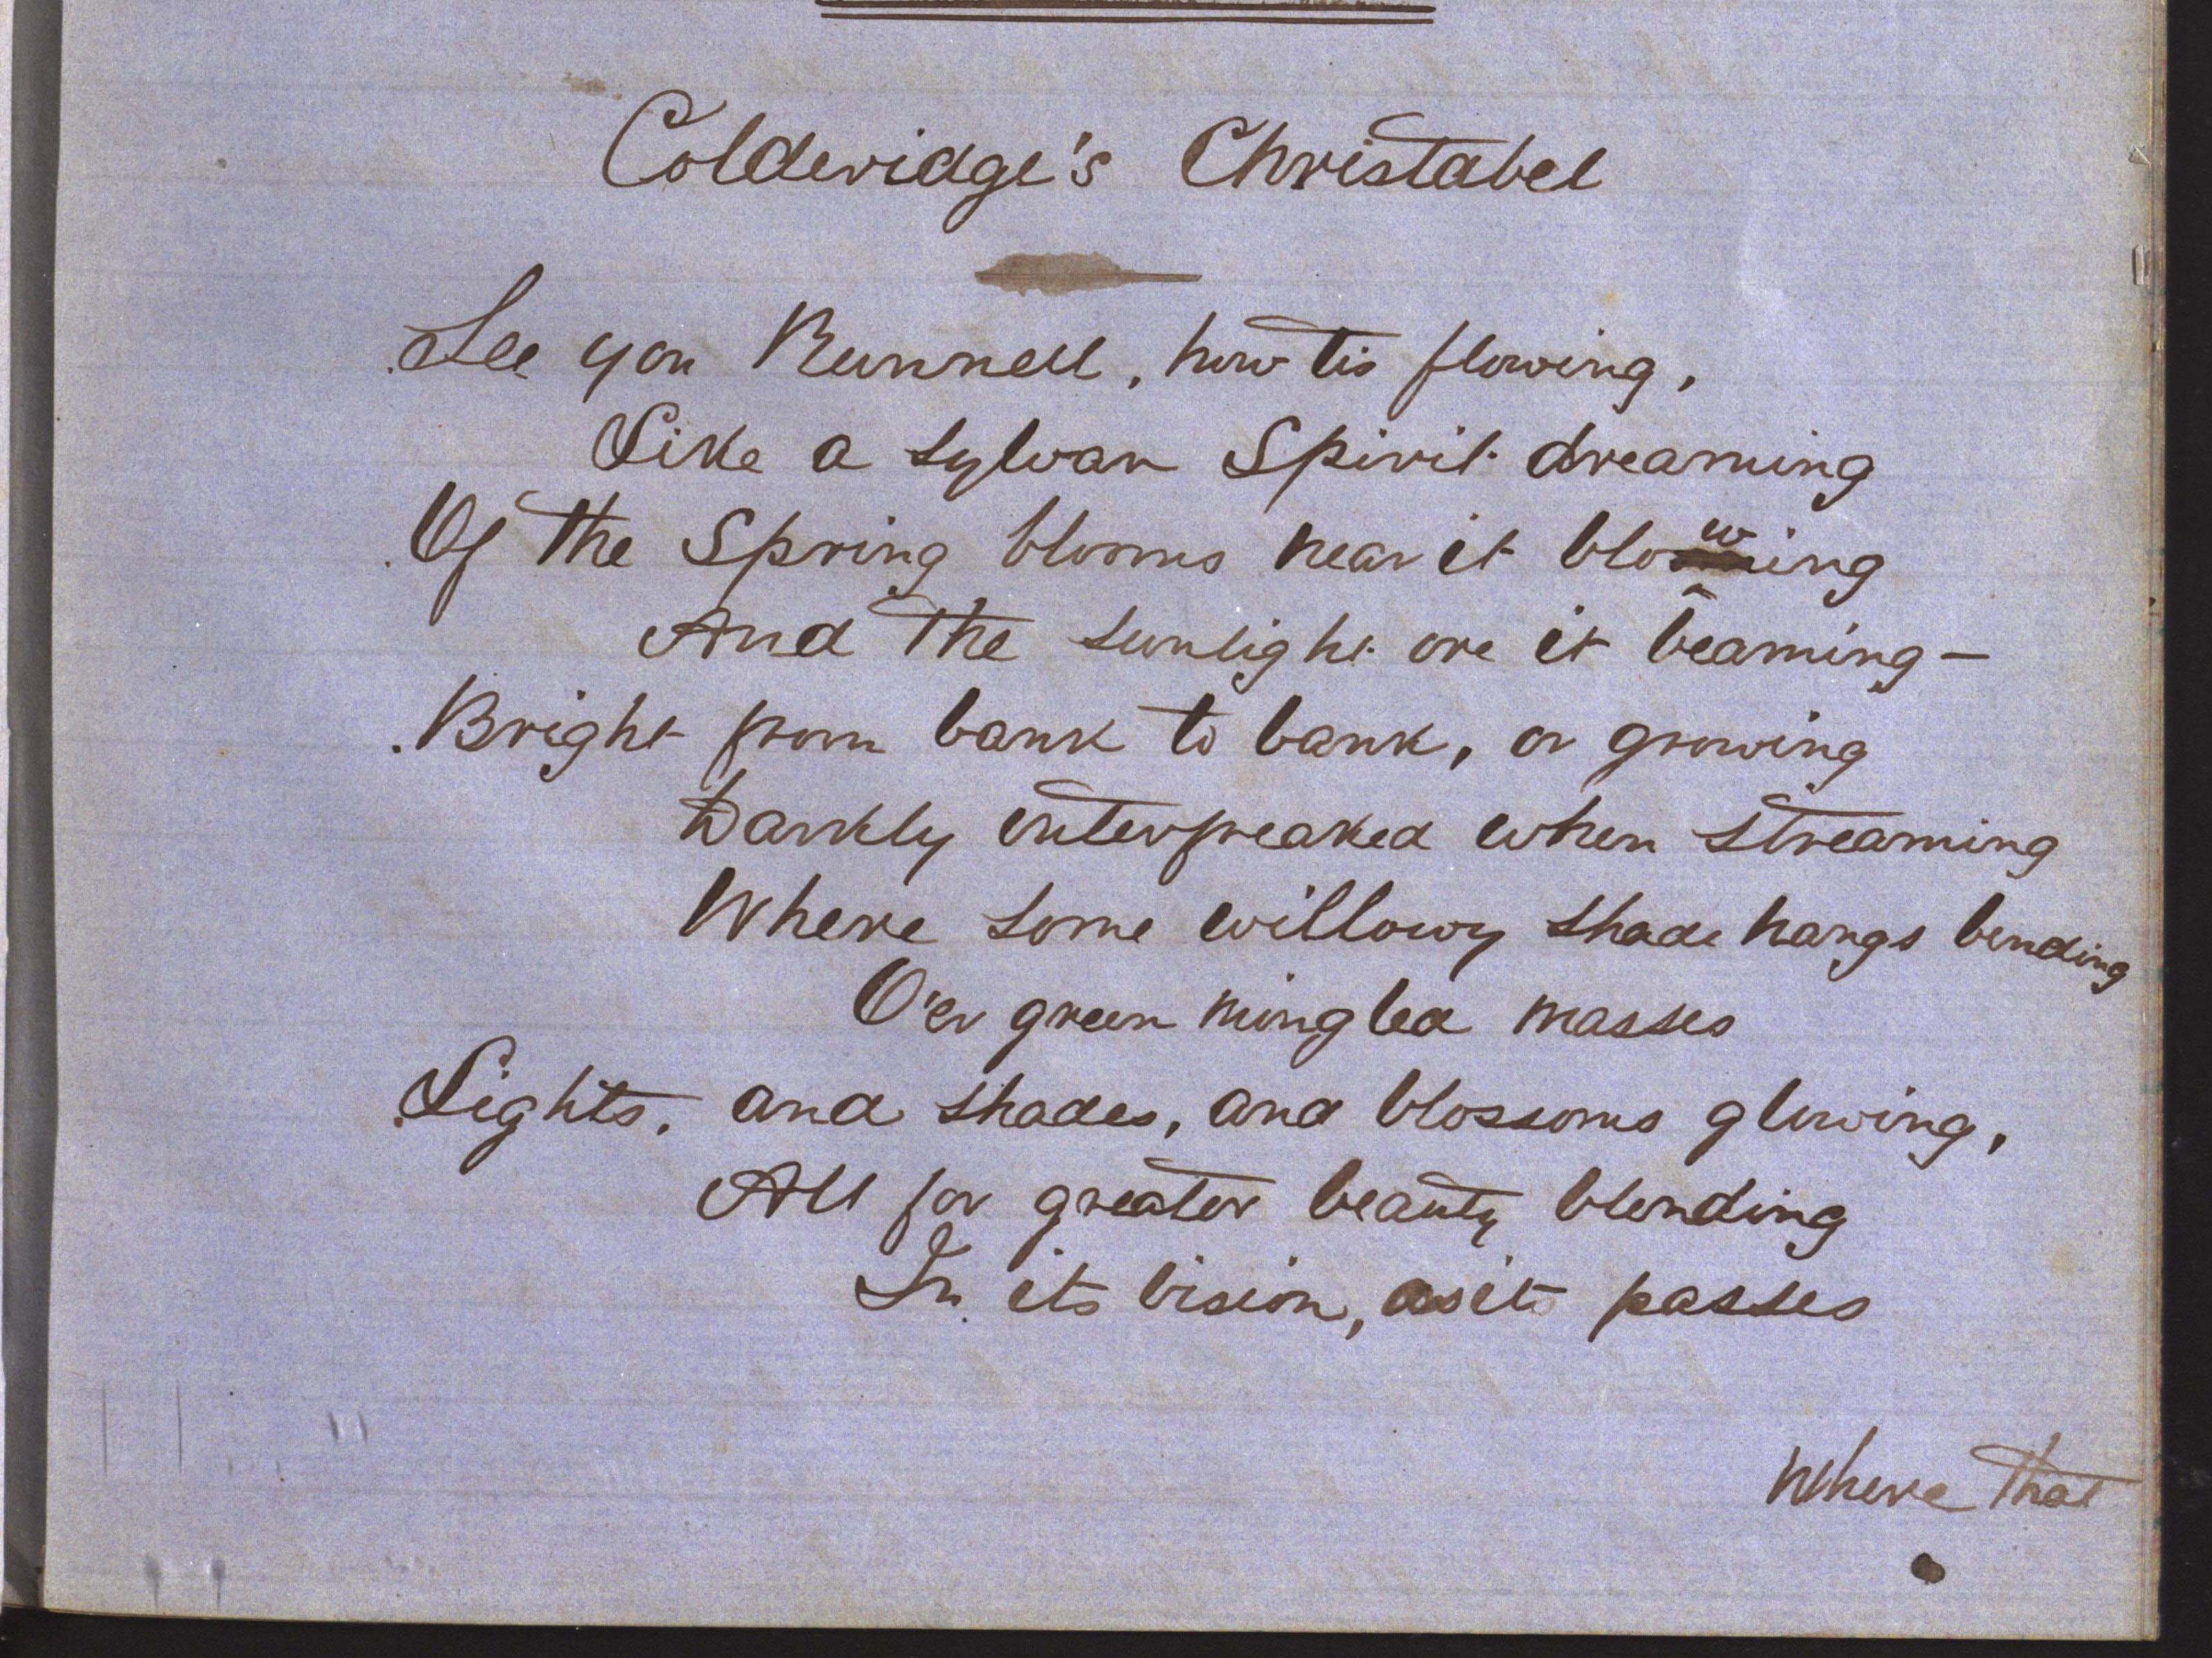 Colderidge's Christabel
See yon Runnell, how tis flowing,
Like a sylvan Spirit dreaming
Of the Spring blooms near it blowing
And the sunlight ore it beaming—
Bright from bank to bank, or growing
Darkly interfreaked when streaming
Where some willowy shade hangs bending
O'er green mingled masses
Lights, and shades, and blossoms glowing,
All for greater beauty blending
In its vision, as it passes
Where that